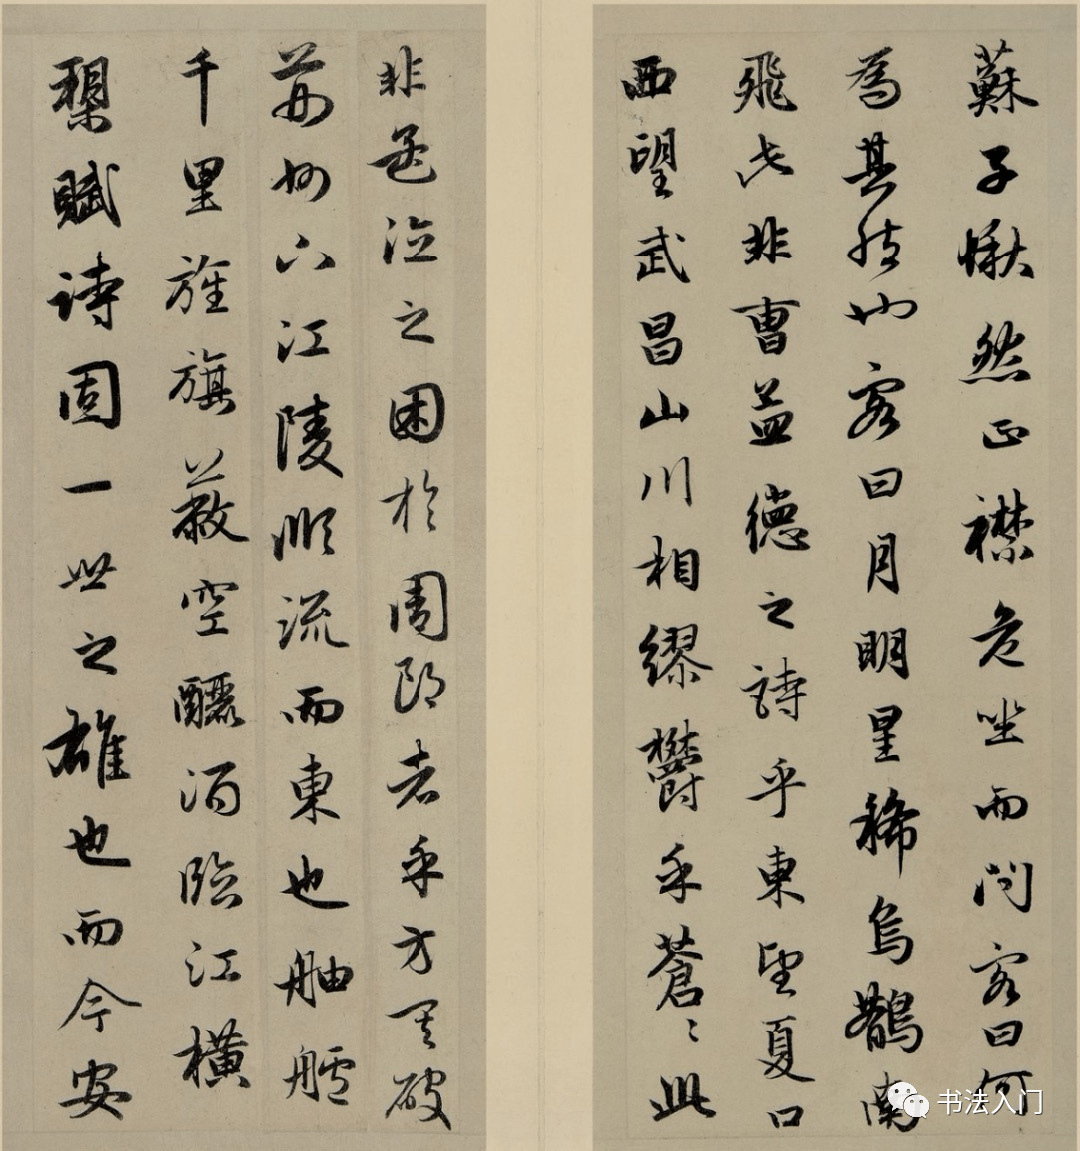 蘇子愀然正襟危坐而問客曰何
為其然也客曰月明星稀烏鵲南
飛此非曹孟德之詩乎東望夏口
西望武昌山川相繆鬱乎蒼〻此
非孟德之困於周郎者乎方其破
荊州下江陵順流而東也舳艫
千里旌旗蔽空釃酒臨江橫
槊賦詩固一世之雄也而今安
书法入门